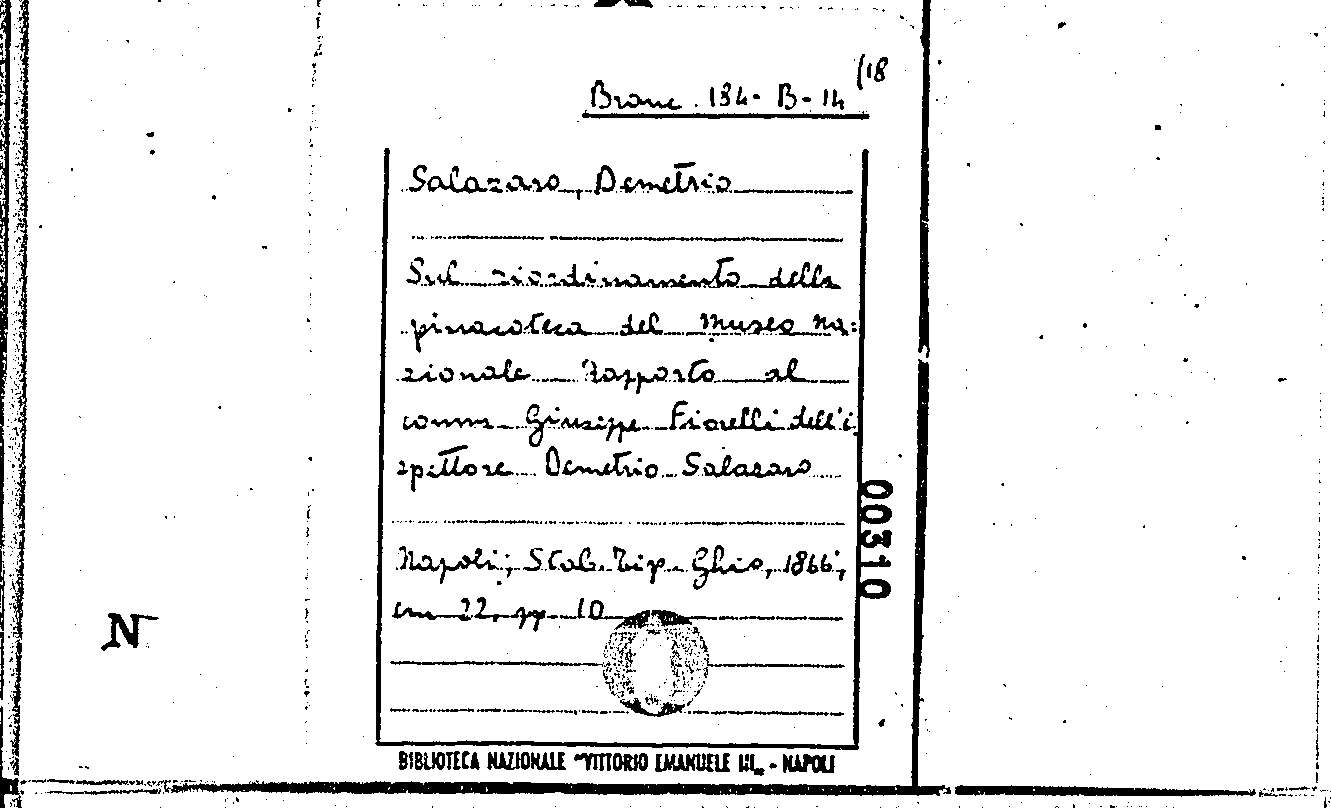 (18
Branc. 134- B- 14
Salazaro, Demetrio
Sul riordinamento della
pinacoteca del Museo Na=
zionale Rapporto al
comm. Giuseppe Fiorelli dell'i
spettore Demetrio Salazaro
Napoli; Stab. Tip. Ghio, 1866;
cm 22, pp. 10
00310
N
BIBLIOTECA NAZIONALE "VITTORIO EMANUELE III„ - NAPOLI